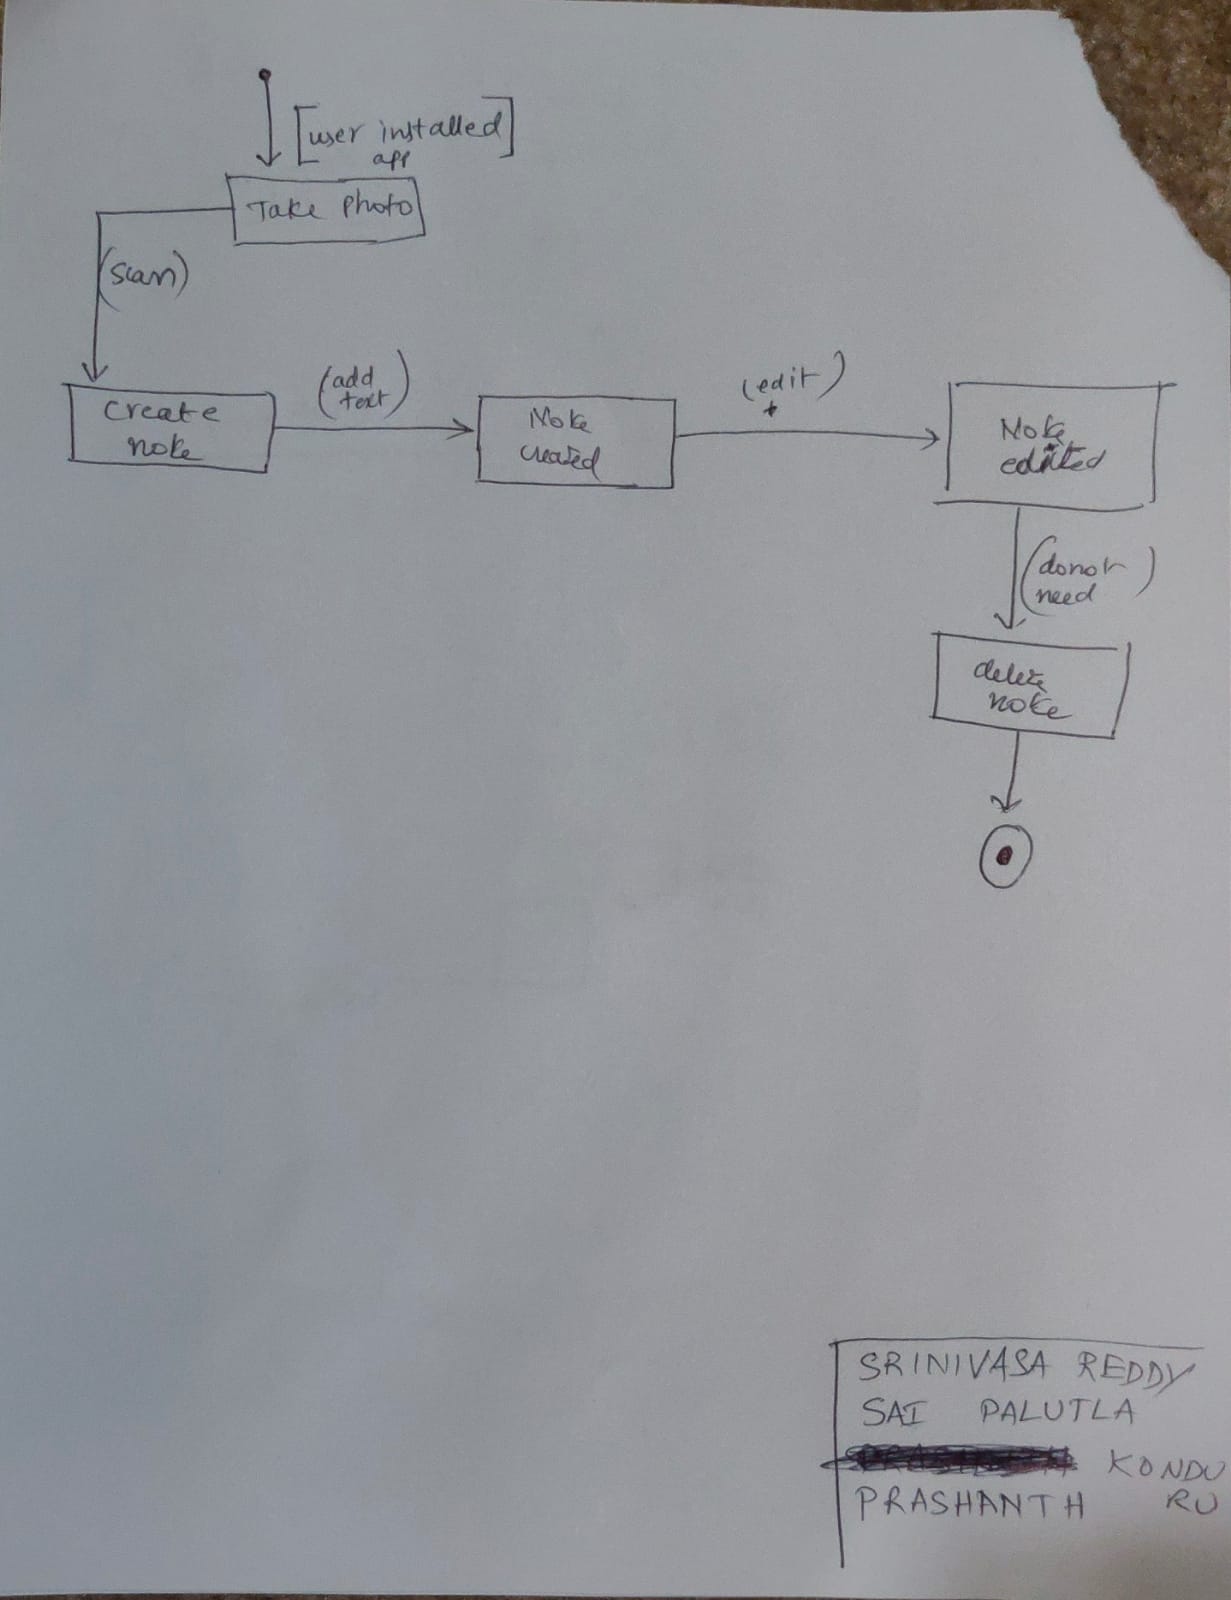 [user installed]
app
Take Photo
(scan)
create
note
(add
text)
Note
created
(edit)
Note
edited
(donot
need)
delete
note
SRINIVASA REDDY
SAI PALUTLA
KONDU
PRASHANTH RU